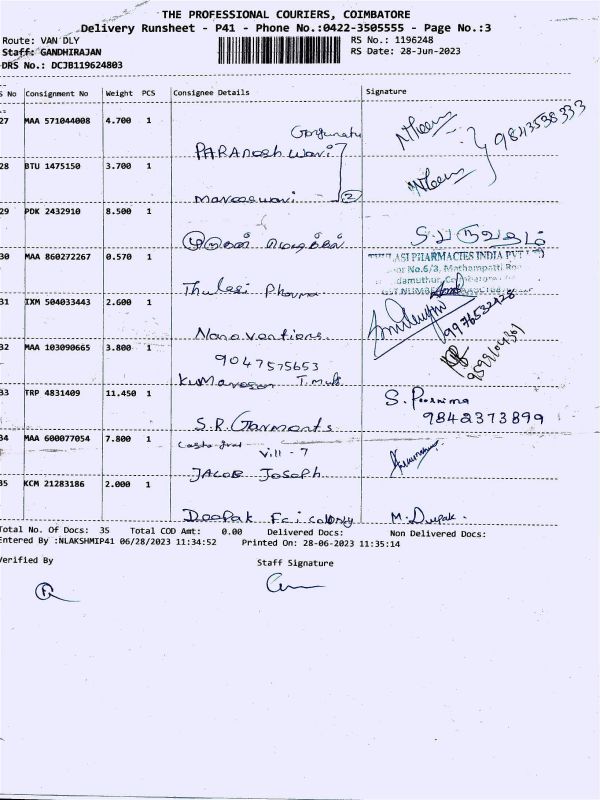 THE PROFESSIONAL COURIERS, COIMBATORE
Delivery Runsheet - P41 - Phone No.:0422-3505555 - Page No.:3
Route: VAN DLY
RS No.: 1196248
Staff: GANDHIRAJAN
RS Date: 28-Jun-2023
DRS No.: DCJB119624803
S No Consignment No Weight PCS Consignee Details Signature
27 MAA 571044008 4.700 1
9843538333
28 BTU 1475150 3.700 1
Mareeswari
2
29 PDK 2432910 8.500 1
முருகன்
30 MAA 860272267 0.570 1
ASI PHARMACIES INDIA PVT
or No.6/3, Mathampatti Ro
Thulasi Pharma
31 IXM 504033443 2.600 1
Nanoventions
9976532428
32 MAA 103090665 3.800 1
9047575653
Kumaresan
33 TRP 4831409 11.450 1
S. Poornima
9842373899
S.R. Garments
34 MAA 600077054 7.800 1
Vill - 7
JACOB Joseph
35 KCM 21283186 2.000 1
Deepak Fci colony M. Deepak.
Total No. Of Docs: 35 Total COD Amt: 0.00 Delivered Docs: Non Delivered Docs:
Entered By :NLAKSHMIP41 06/28/2023 11:34:52 Printed On: 28-06-2023 11:35:14
Verified By
Staff Signature